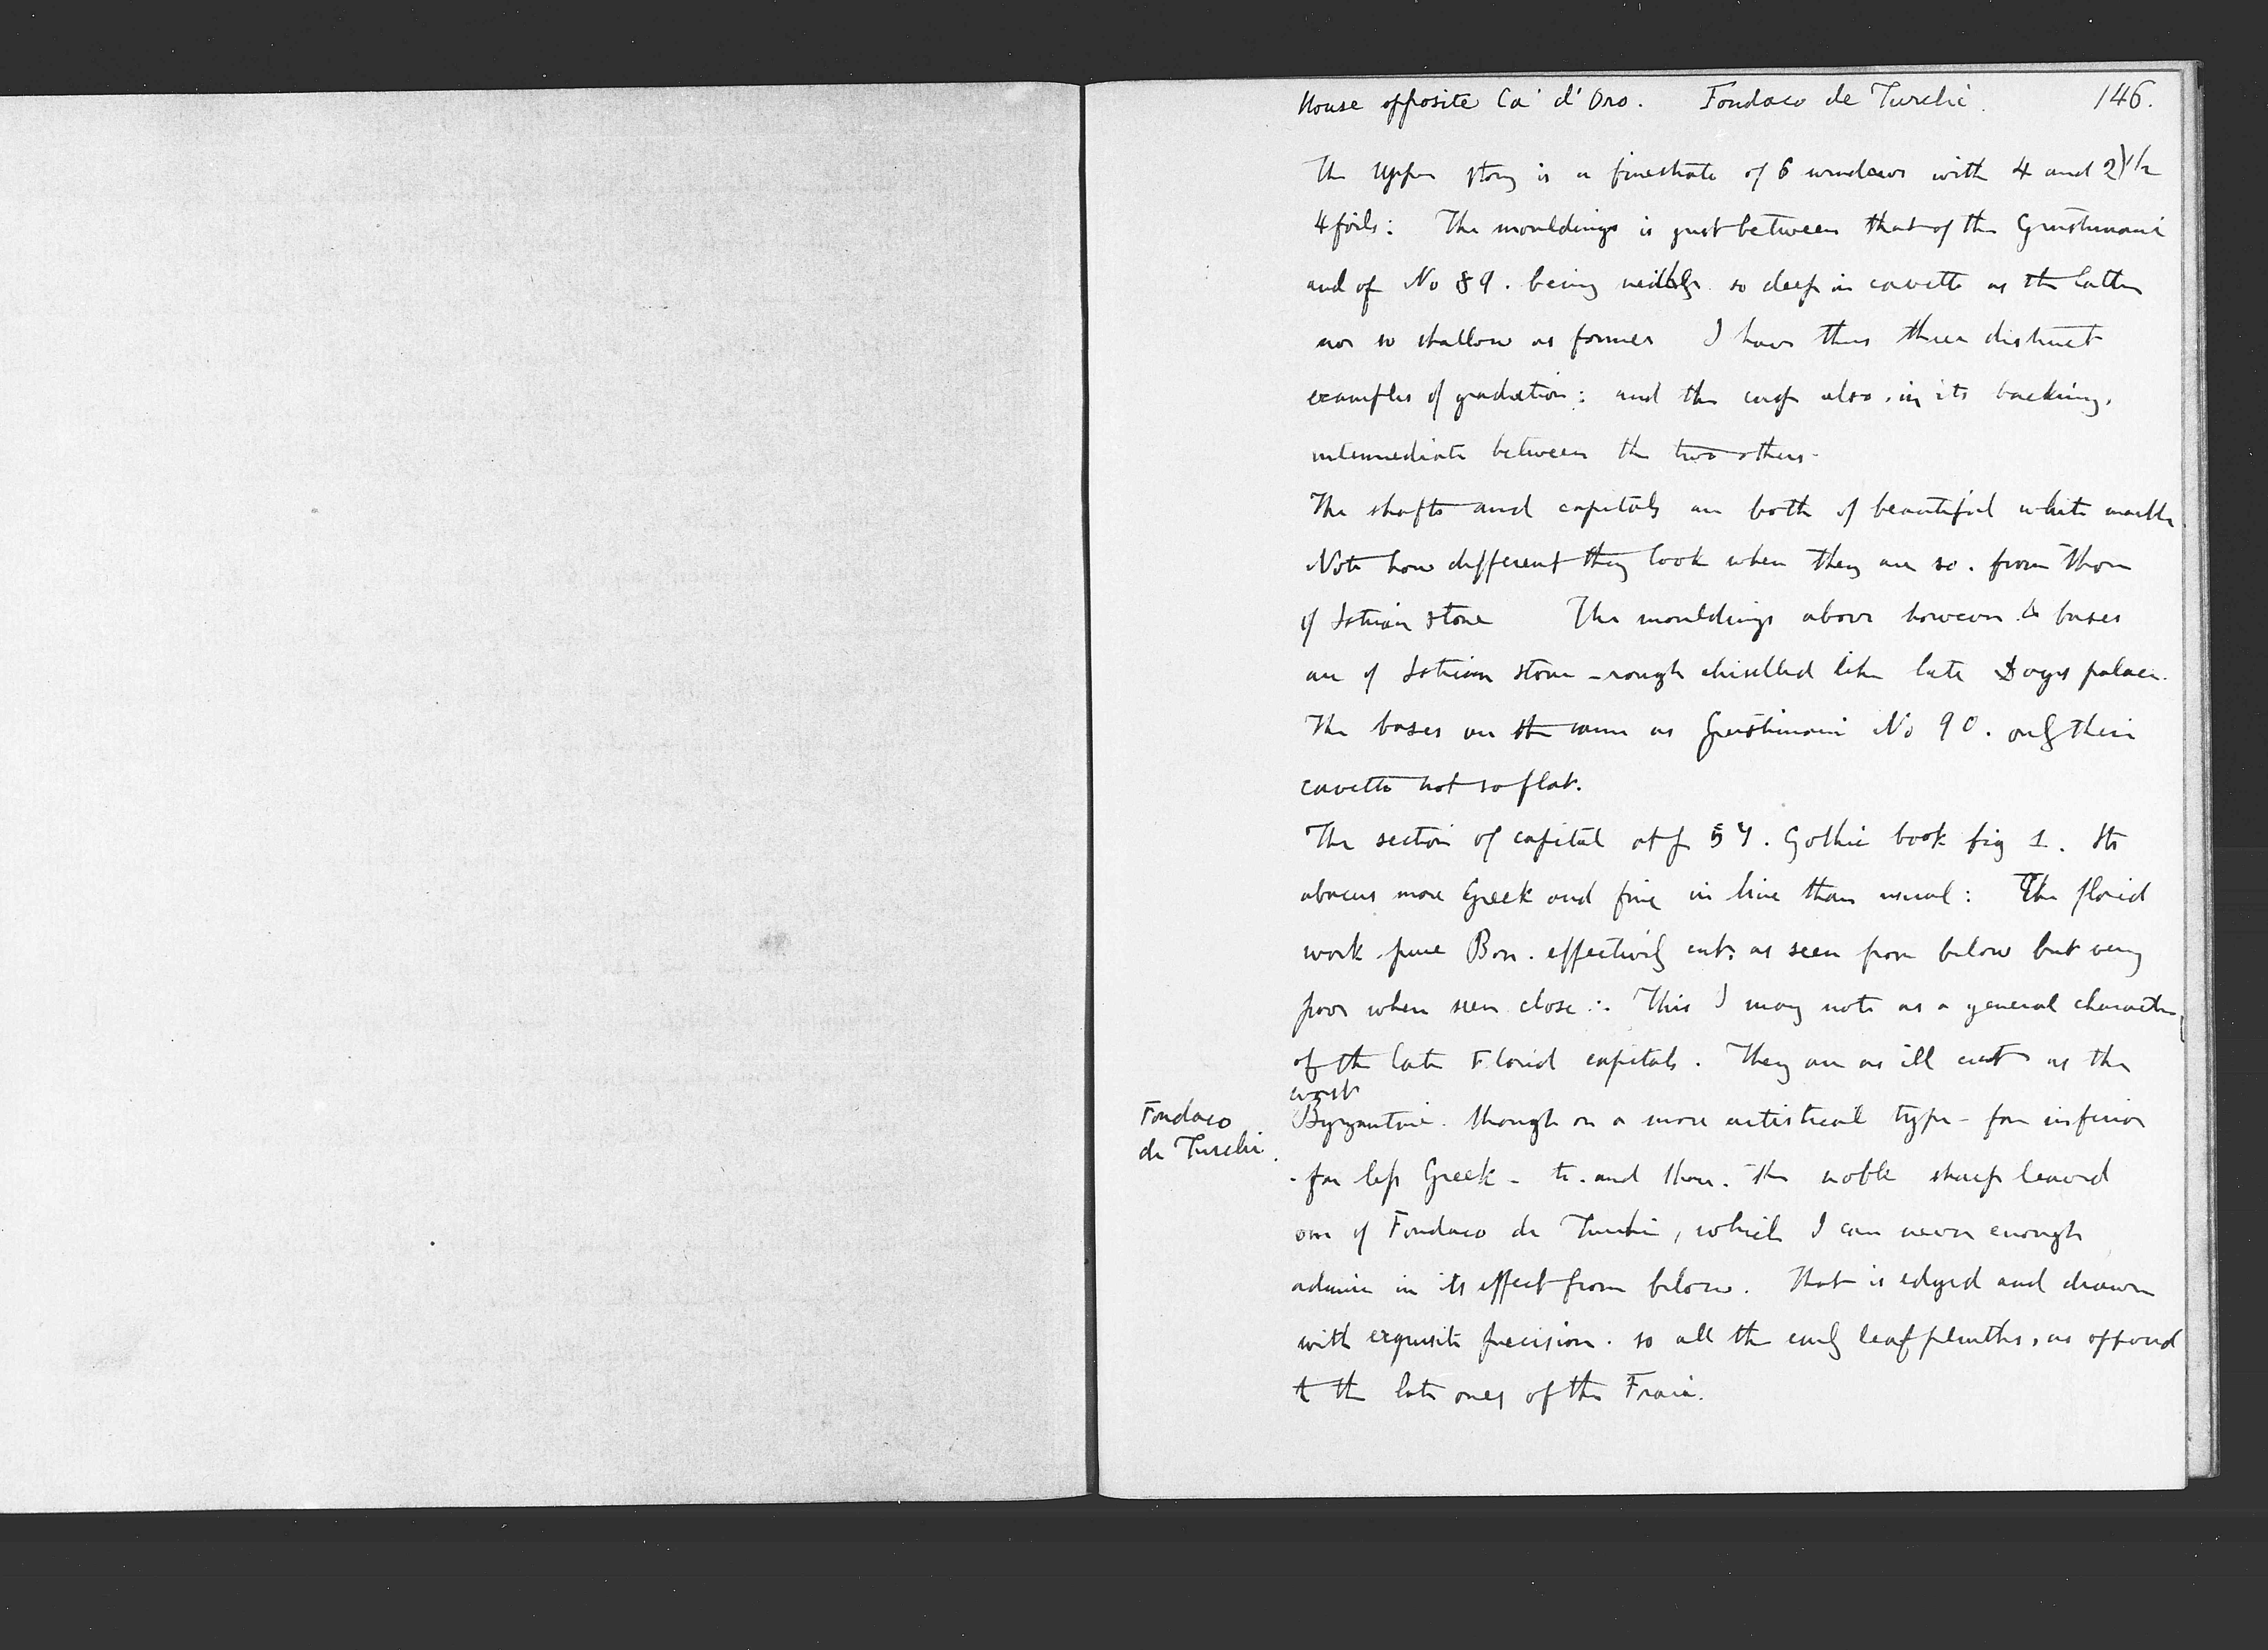 House opposite Ca' d'Oro. Fondaco de Turchi. 146.
The upper story is a finestrate of 6 windows with 4 and 2) 1/2
4foils: The mouldings is just between that of the Giustiniani
and of No 89. being neither so deep in cavetto as the latter
nor so shallow as former I have thus three distinct
examples of gradation: and the cusp also, in its backing,
intermediate between the two others.
The shafts and capitals are both of beautiful white marble
Note how different they look when they are so. from those
of Istrian stone The mouldings above however & bases
are of Istrian stone - rough chiselled like late Doges palace.
The bases are the same as Giustiniani No 90. only their
cavetto not so flat.
The section of capital at p 57. Gothic book fig 1. Its
abacus more Greek and fine in line than usual: The florid
work pure Bon. effectively cut, as seen from below but very
poor when seen close:. This I may note as a general character
of the late Florid capitals. They are as ill cut as the
worst
Fondaco
de Turchi.
Byzantine. though on a more artistical type - far inferior
- far less Greek - to. and thou. the noble sharp leaved
one of Fondaco de Turchi, which I can never enough
admire in its effect from below. That is edged and drawn
with exquisite precision. so all the early leaf plinths, as opposed
to the late ones of the Frari.